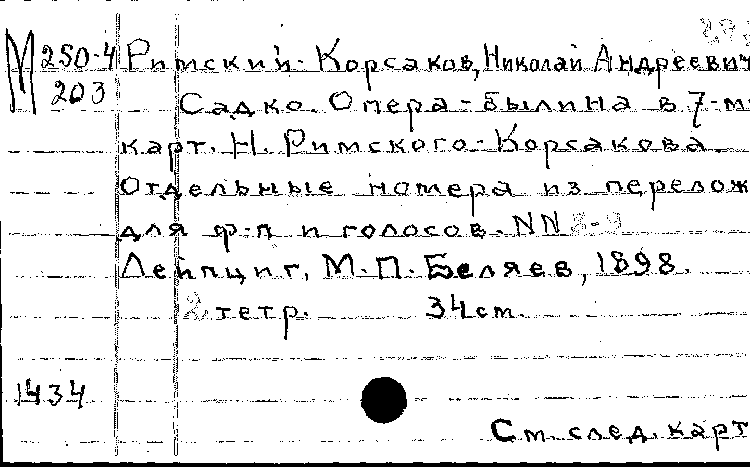 М 250-4 Римский-Корсаков, Николай Андреевич
203 Садко. Опера-былина в 7-ми
карт. Н. Римского-Корсакова.
Отдельные номера из перелож
для ф-п и голосов. NN 8-9
Лейпциг, М.П. Беляев, 1898.
2 тетр. 34 cm.
1434
См. след. карт